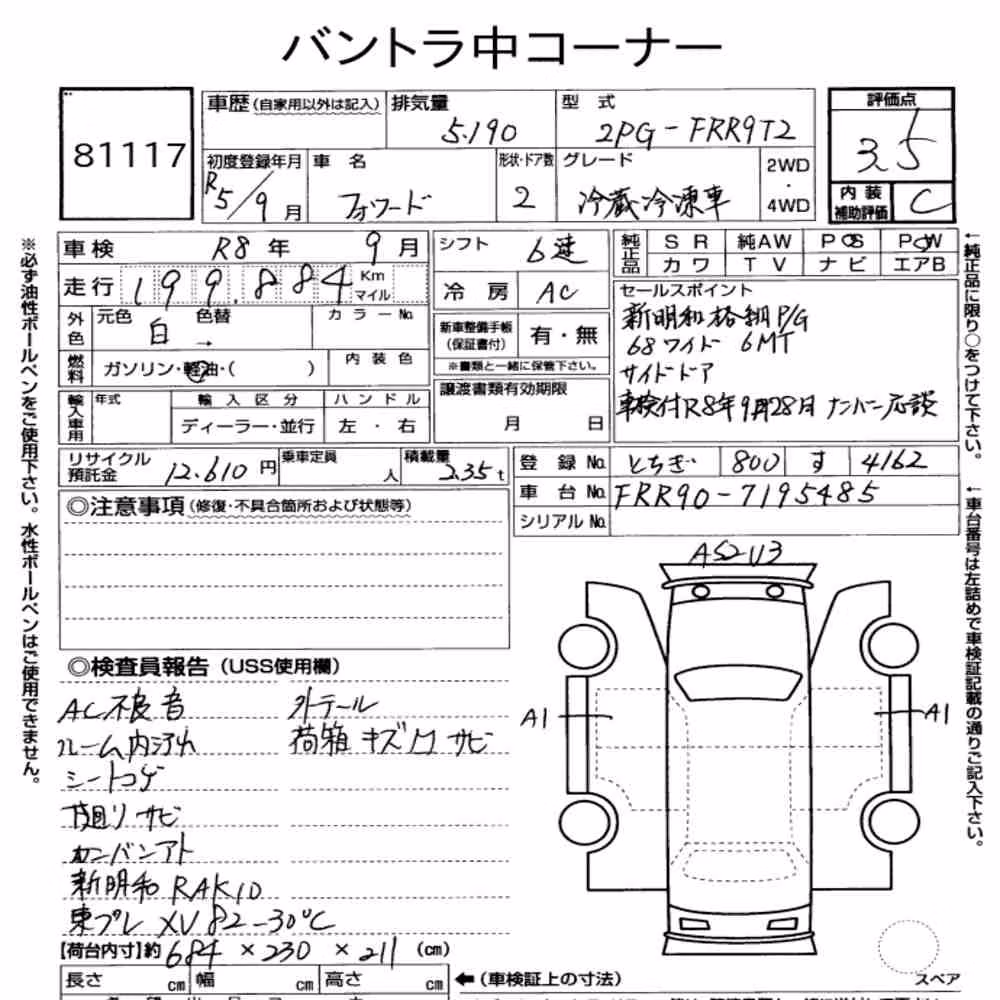 バントラ中コーナー
81117
車歴(自家用以外は記入) 排気量 5.190
型式 2PG-FRR9T2
評価点 3.5
初度登録年月 R5/9月
車名 フォワード
形状・ドア数 2
グレード 冷蔵冷凍車
2WD・4WD
内装補助評価 C
車検 R8年 9月
シフト 6速
純正品 SR 純AW PS PW
カワ TV ナビ エアB
走行 199.884 Km マイル
冷房 AC
外色 元色 白 色替 → カラーNo.
新車整備手帳(保証書付) 有・無
※書類と一緒に保管下さい。
燃料 ガソリン・軽油・( )
内装色
セールスポイント
新明和 格納P/G
68ワイド 6MT
サイドドア
車検付R8年9月28日 ナンバー応談
譲渡書類有効期限
月 日
輸入車用 年式 輸入区分 ハンドル
ディーラー・並行 左・右
リサイクル預託金 12.610円
乗車定員 人
積載量 2.35t
登録No. とちぎ 800 す 4162
車台No. FRR90-7195485
シリアルNo.
◎注意事項(修復・不具合箇所および状態等)
◎検査員報告(USS使用欄)
AC不良 音
ルーム内汚れ
シートコゲ
下廻りサビ
カンバンアト
新明和 RAK10
東プレ XV82-30℃
外テール
荷箱 キズ凹サビ
【荷台内寸】約 684×230×211 (cm)
長さ cm 幅 cm 高さ cm
←(車検証上の寸法)
AS2U3
A1
A1
スペア
※必ず油性ボールペンをご使用下さい。水性ボールペンはご使用できません。
←純正品に限り○をつけて下さい。
←車台番号は左詰めで車検証記載の通りご記入下さい。